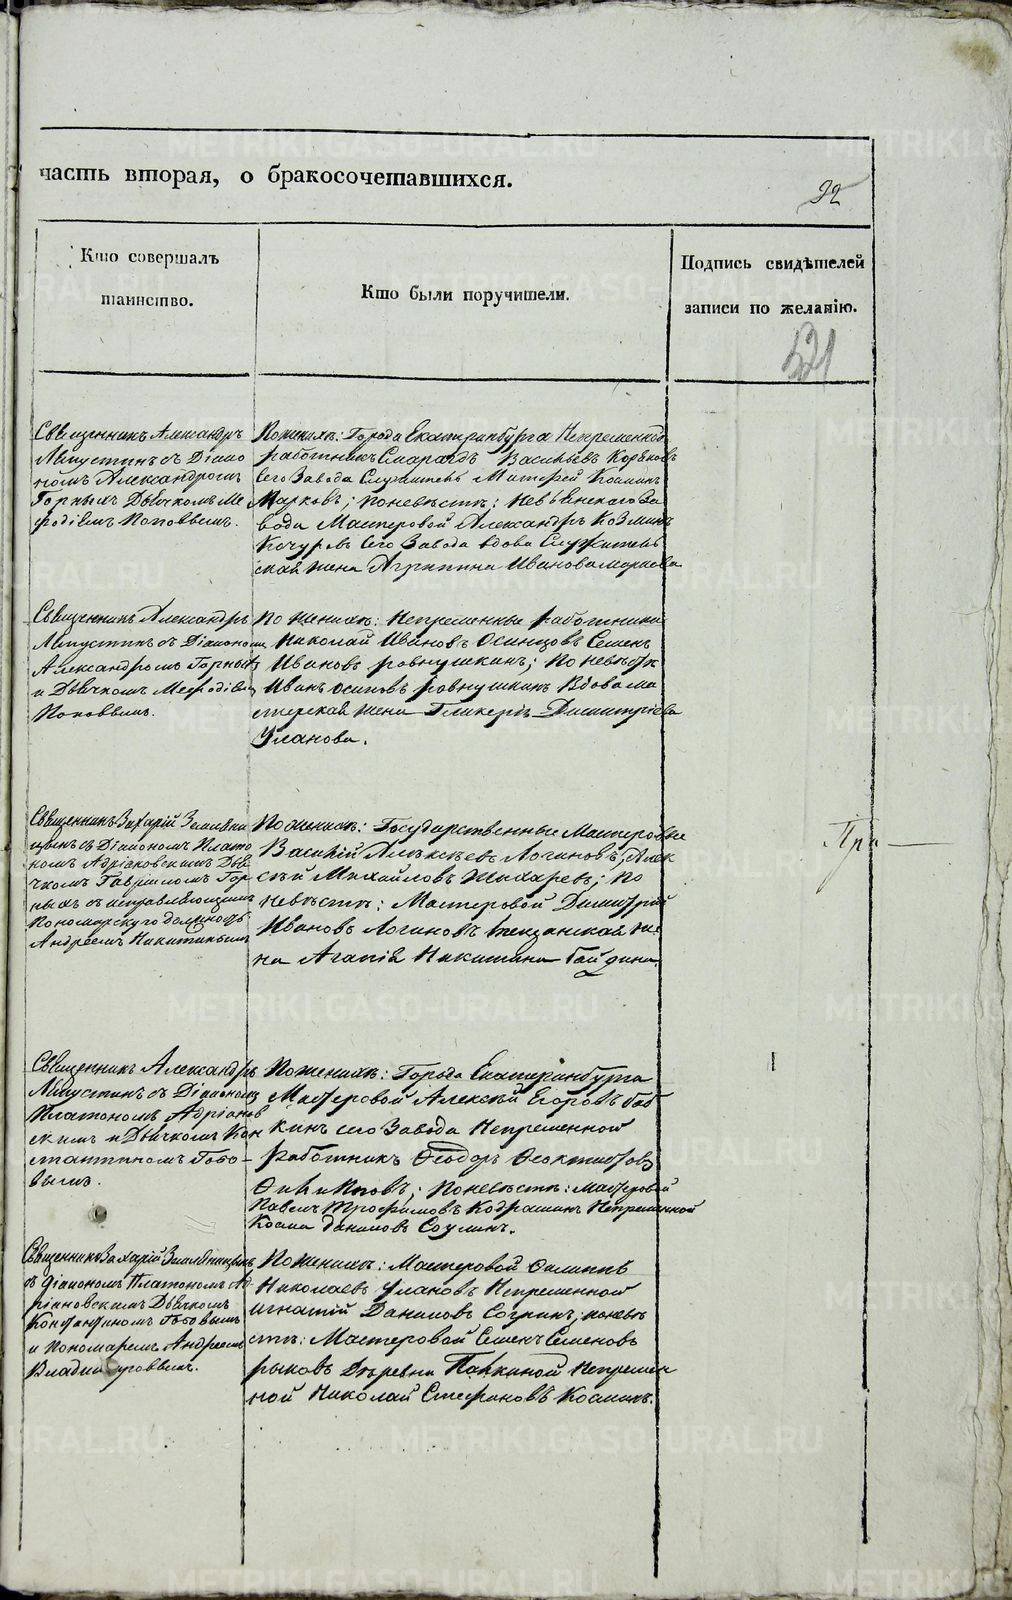 часть вторая, о бракосочетавшихся.
92
Кто совершалъ
таинство.
Кто были поручители.
Подпись свидѣтелей
записи по желанію.
521
Священникъ Александръ
съ Діако
номъ Александромъ
Горныхъ Дьячкомъ Ме
фодіемъ Поповымъ.
По женихѣ: Города Екатеринбурга Непременной
работникъ Смарагдъ Васильевъ
сего Завода Служитель Матфей Козминъ
Марковъ; по невѣстѣ: Невьянскаго За
вода Мастеровой Александръ Козминъ
Кочуровъ сего Завода вдова Служитель
ская жена Агрипина Иванова Маркова
Священникъ Александръ
съ Діакономъ
Александромъ Горныхъ
и Дьячкомъ Мефодіемъ
Поповымъ.
По женихѣ: Непременные работники
Николай Ивановъ Осинцовъ Семенъ
Ивановъ Ровнушкинъ; по невѣстѣ
Иванъ Осиповъ Ровнушкинъ Вдова ма
стерская жена Гликерія Димитріева
Уланова.
Священникъ Захарій Земляни
цынъ съ Діакономъ Плато
номъ Адріановскимъ Дья
чкомъ Гавріиломъ Гор
ныхъ и исправляющимъ
Пономарскую должность
Андреемъ Никитинымъ
По женихѣ: Государственные Мастеровые
Василій Алексѣевъ Логиновъ, Алек
сѣй Михайловъ Шихаревъ; по
невѣстѣ: Мастеровой Димитрій
Ивановъ Логиновъ же
на Агапія Никитина
При
Священникъ Александръ
съ Діакономъ
Платономъ Адріанов
скимъ и Дьячкомъ Кон
стантиномъ Топо
вымъ.
По женихѣ: Города Екатеринбурга
Мастеровой Алексѣй Егоровъ Боб
кинъ сего Завода Непременной
работникъ Ѳеодоръ Ѳеоктистовъ
по невѣстѣ: Мастеровой
Павелъ Трофимовъ Кодрашинъ Непременной
Косма Даниловъ
Священникъ Захарій Земляницынъ
съ Діакономъ Платономъ Ад
ріановскимъ Дьячкомъ
Константиномъ
и Пономаремъ Андреемъ
По женихѣ: Мастеровой Филиппъ
Николаевъ Улановъ Непременной
Игнатій Даниловъ Согринъ; по невѣ
стѣ: Мастеровой Семенъ Семеновъ
Рыковъ Деревни Непремен
ной Николай Стефановъ Косминъ.
METRIKI.GASO-URAL.RU